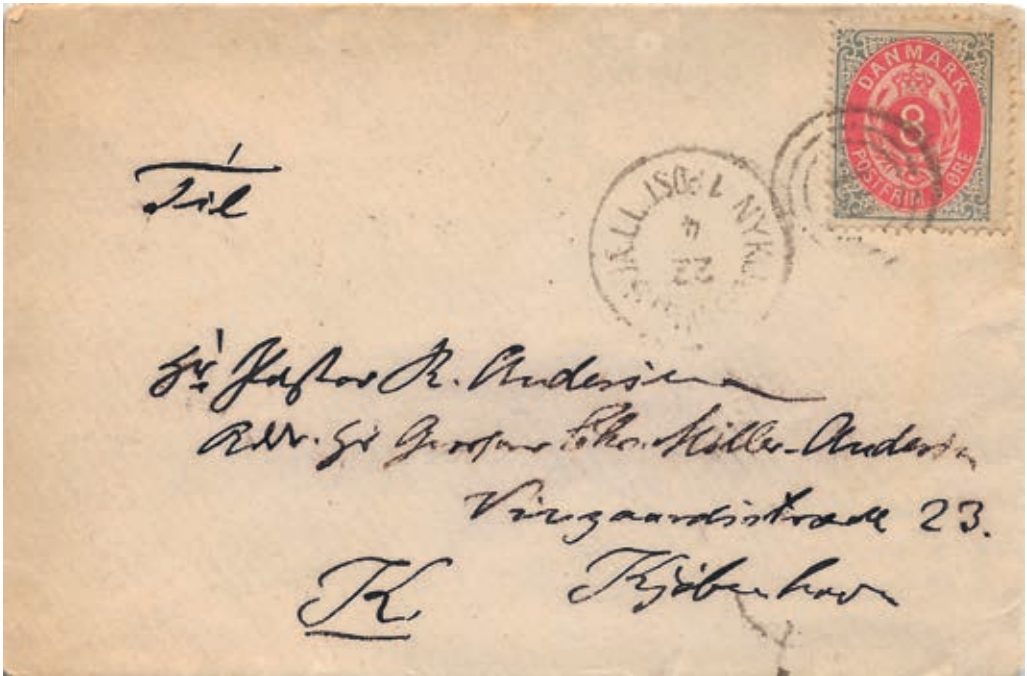 DANMARK
8
POSTFRIM ØRE
NYKJ SJÆLL 1 POST
22
4
Til
Hr Pastor R. Andersen
Adr. Hr Chr. Møller-Andersen
Vingaardsstræde 23.
K. Kjøbenhavn